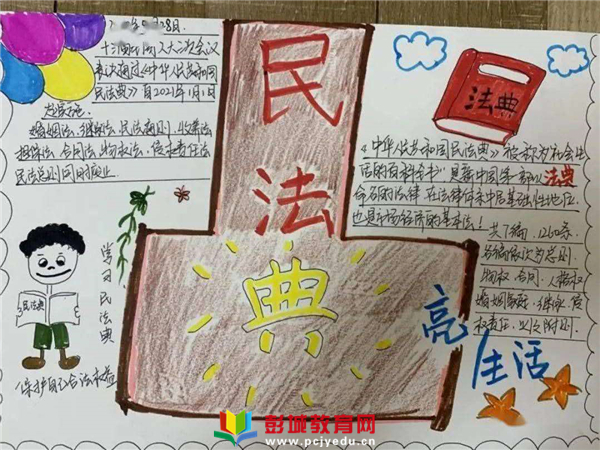 28日.
十三届全国人大三次会议
表决通过《中华人民共和国
民法典》自2021年1月1日
起实施.
婚姻法、继承法、民法通则、收养法
担保法、合同法、物权法、侵权责任法
民法总则同时废止
学习民法典
民法典
保护自己合法权益
民法典
亮
生活
法典
《中华人民共和国民法典》被称为社会生
活的百科全书", 是新中国第一部以法典
命名的法律 在法律体系中居基础性地位,
也是市场经济的基本法!
共7编、1260条,
各编依次为总则、
物权、合同、人格权
婚姻家庭、继承、侵
权责任、以及附则.
彭城教育网
www.pcjyedu.cn